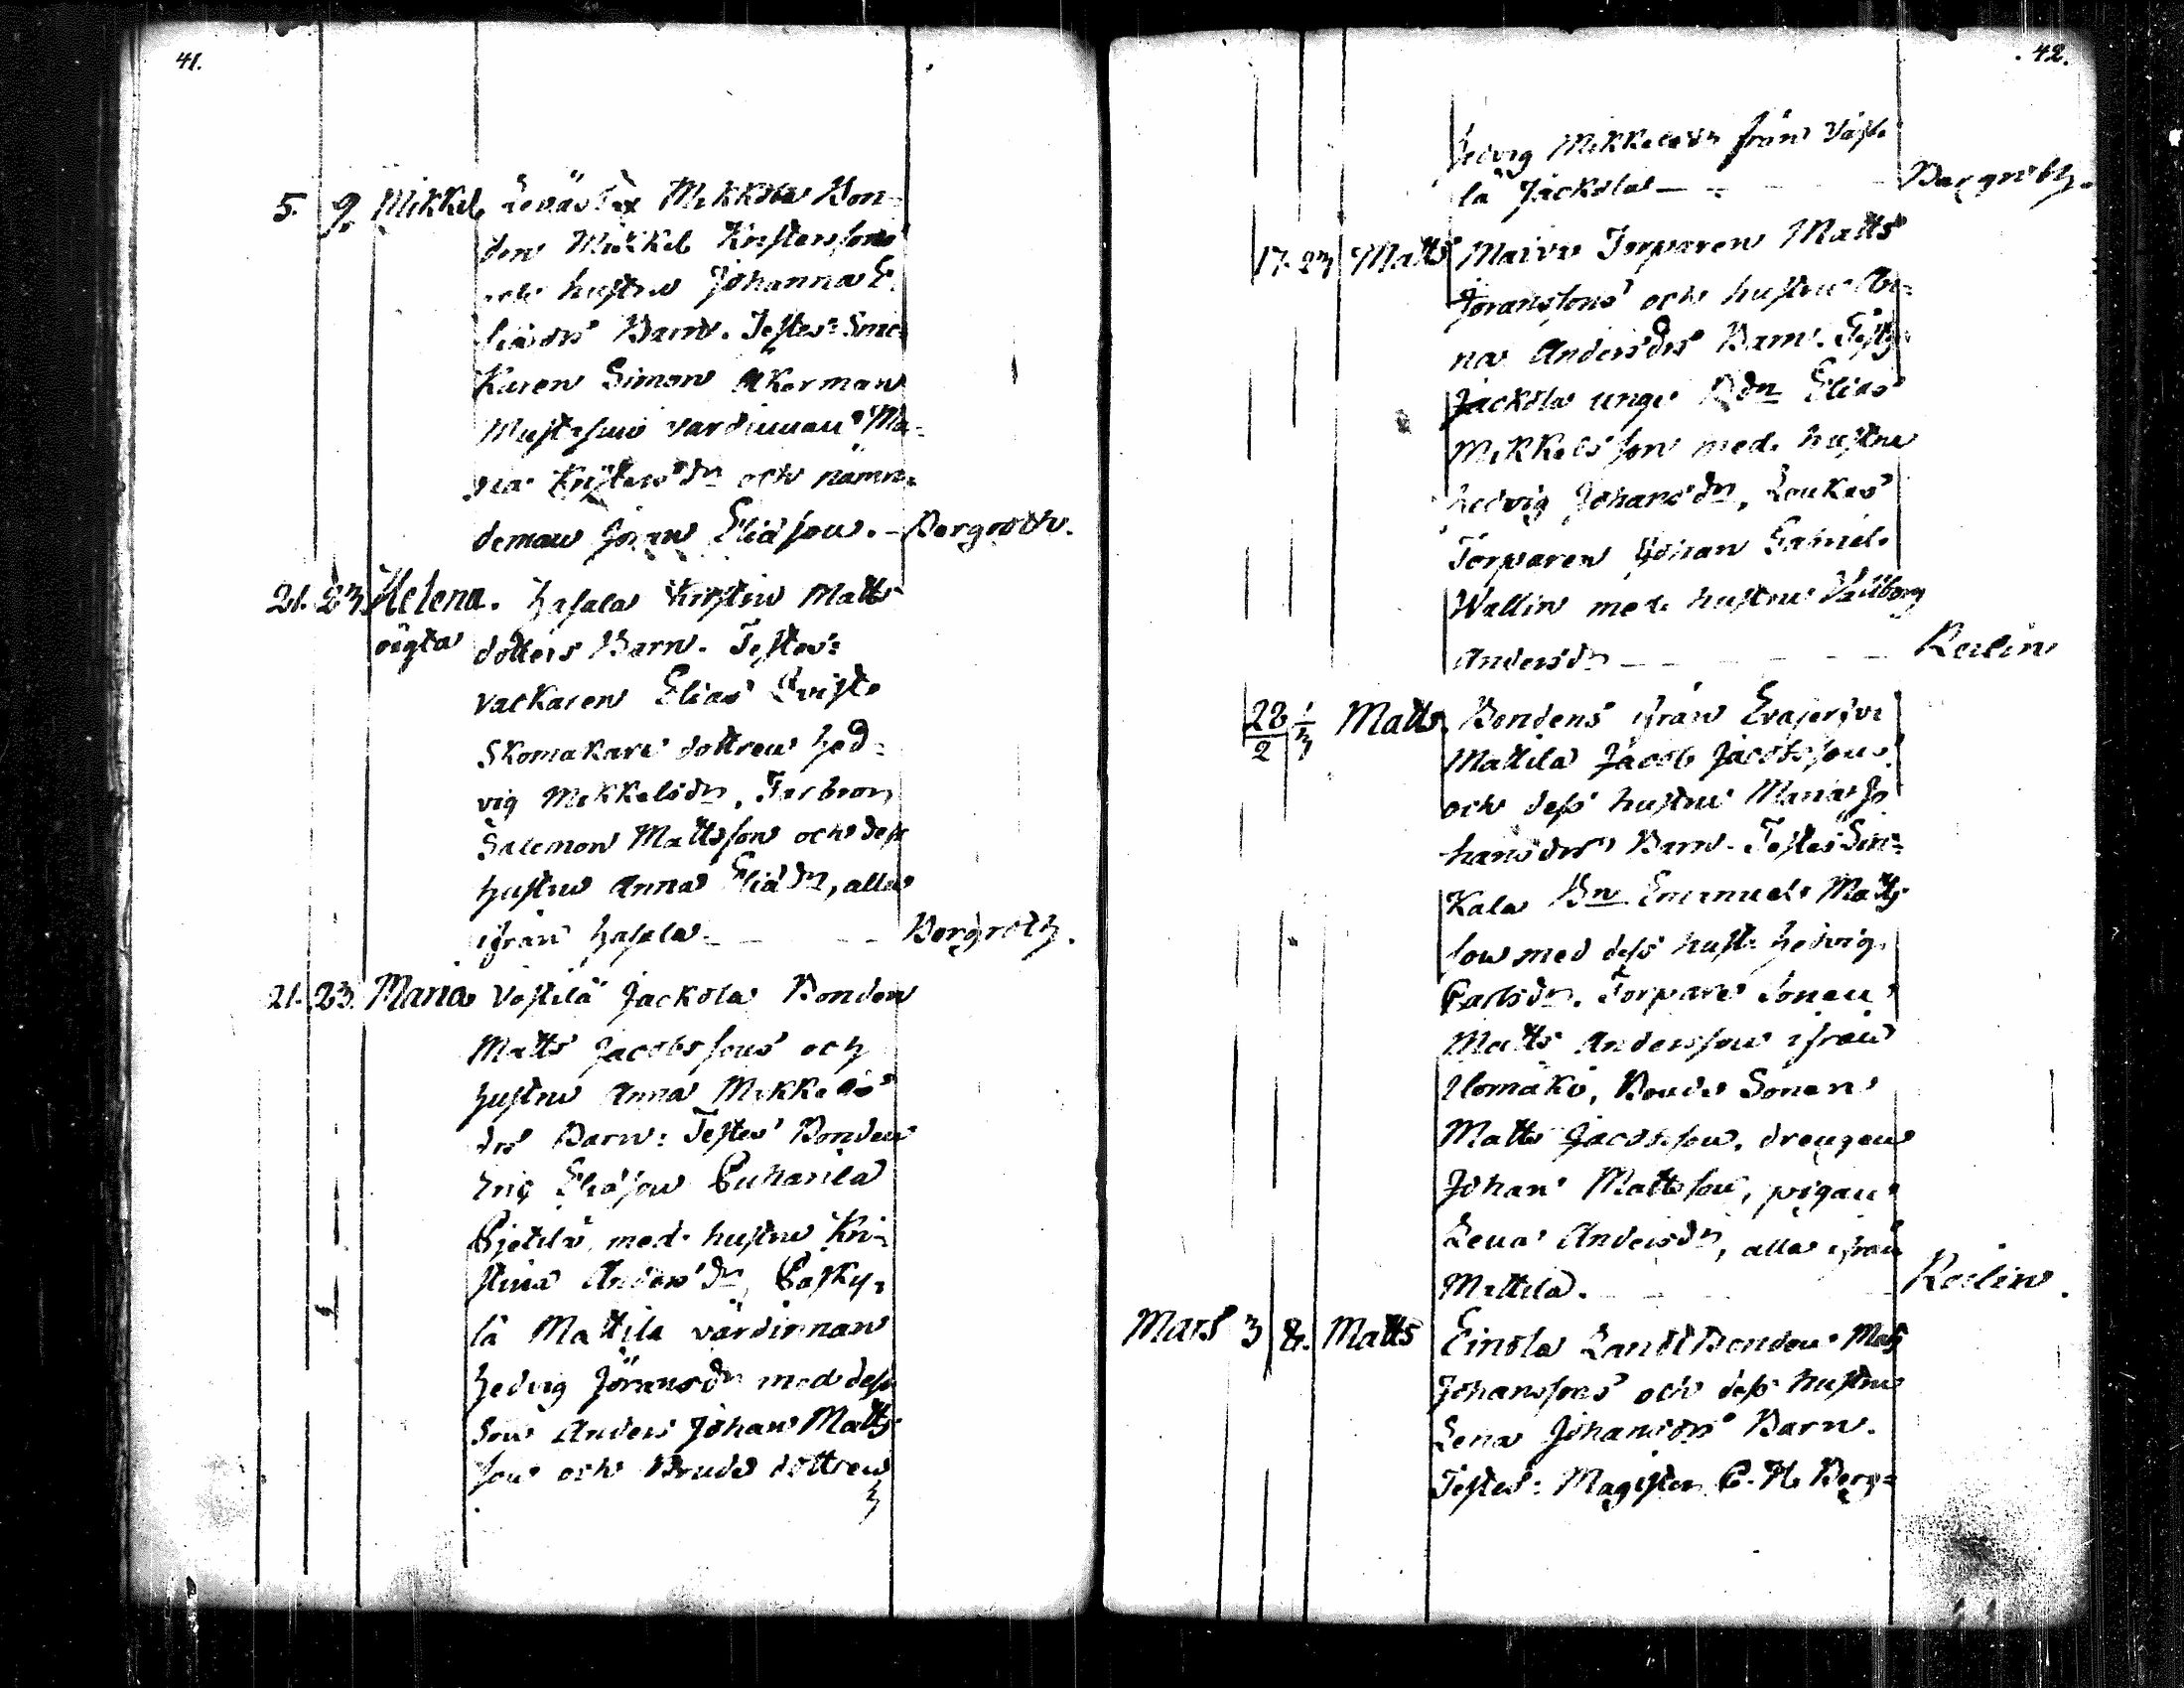 41.
5. 9. Mikkel Leväslax Mikkola Bon=
den Mikkel Kristerssons
och hustru Johanna E
liædrs Barn. Testes: Snic
karen Simon Akerman
Mustasuo värdinnan Ma=
ria Kristersdr och nämn=
deman Jöran Eliasson. - Bergroth.
21. 23. Helena. Hasala Kirstin Matts
oägta dotters Barn. Testes:
vackaren Elias Qvist
Skomakare dottren Hed=
vig Mikkelsdr, Farbron
Salomon Mattsson och dess
hustru Anna Eliædr, alla
ifrån Hasala - - Bergroth.
21. 23. Maria Vestilä Jackola Bonden
Matts Jacobssons och
hustru Anna Mikkels
drs Barn: Testes Bonden
Eric Eliasson Puharila
Pjetilä, med hustru Kri=
stina Andersdr,
lä Mattila värdinnan
Hedvig Jöransdr med dess
Son Anders Johan Matts
son och Bonde dottren
42.
Hedvig Mikkelsdr från Vesti
lä Jackola - - Bergroth.
17. 23 Matts Maivu Torparen Matts
Joranssons och hustru An=
na Andersdrs Barn. Testes
Jackola unge Bdn Elias
Mikkelsson med hustru
Hedvig Johansdr, Loukas
Torparen Johan Gabriel
Wallin med hustru Vallborg
Andersdr - - - Reilin
28/2 1/3 Matts. Bondens ifrån Evajervi
Mattila Jacob Jacobssons
och dess hustru Maria Jo
hansdrs Barn. Testes Sin=
kala Bn Emanuel Matts
son med dess hust. Hedvig
Carlsdr. Torpare Sonen
Matts Andersson ifrån
Ilomäki, Bonde Sonen
Matts Jacobsson, drengen
Johan Mattsson, pigan
Lena Andersdr, alla ifrån
Mattila. - - - Reilin.
Mars 3 8. Matts Einola Landtbonden Matts
Johanssons och dess hustru
Lena Johansdrs Barn.
Testes: Magister C. H. Berg=